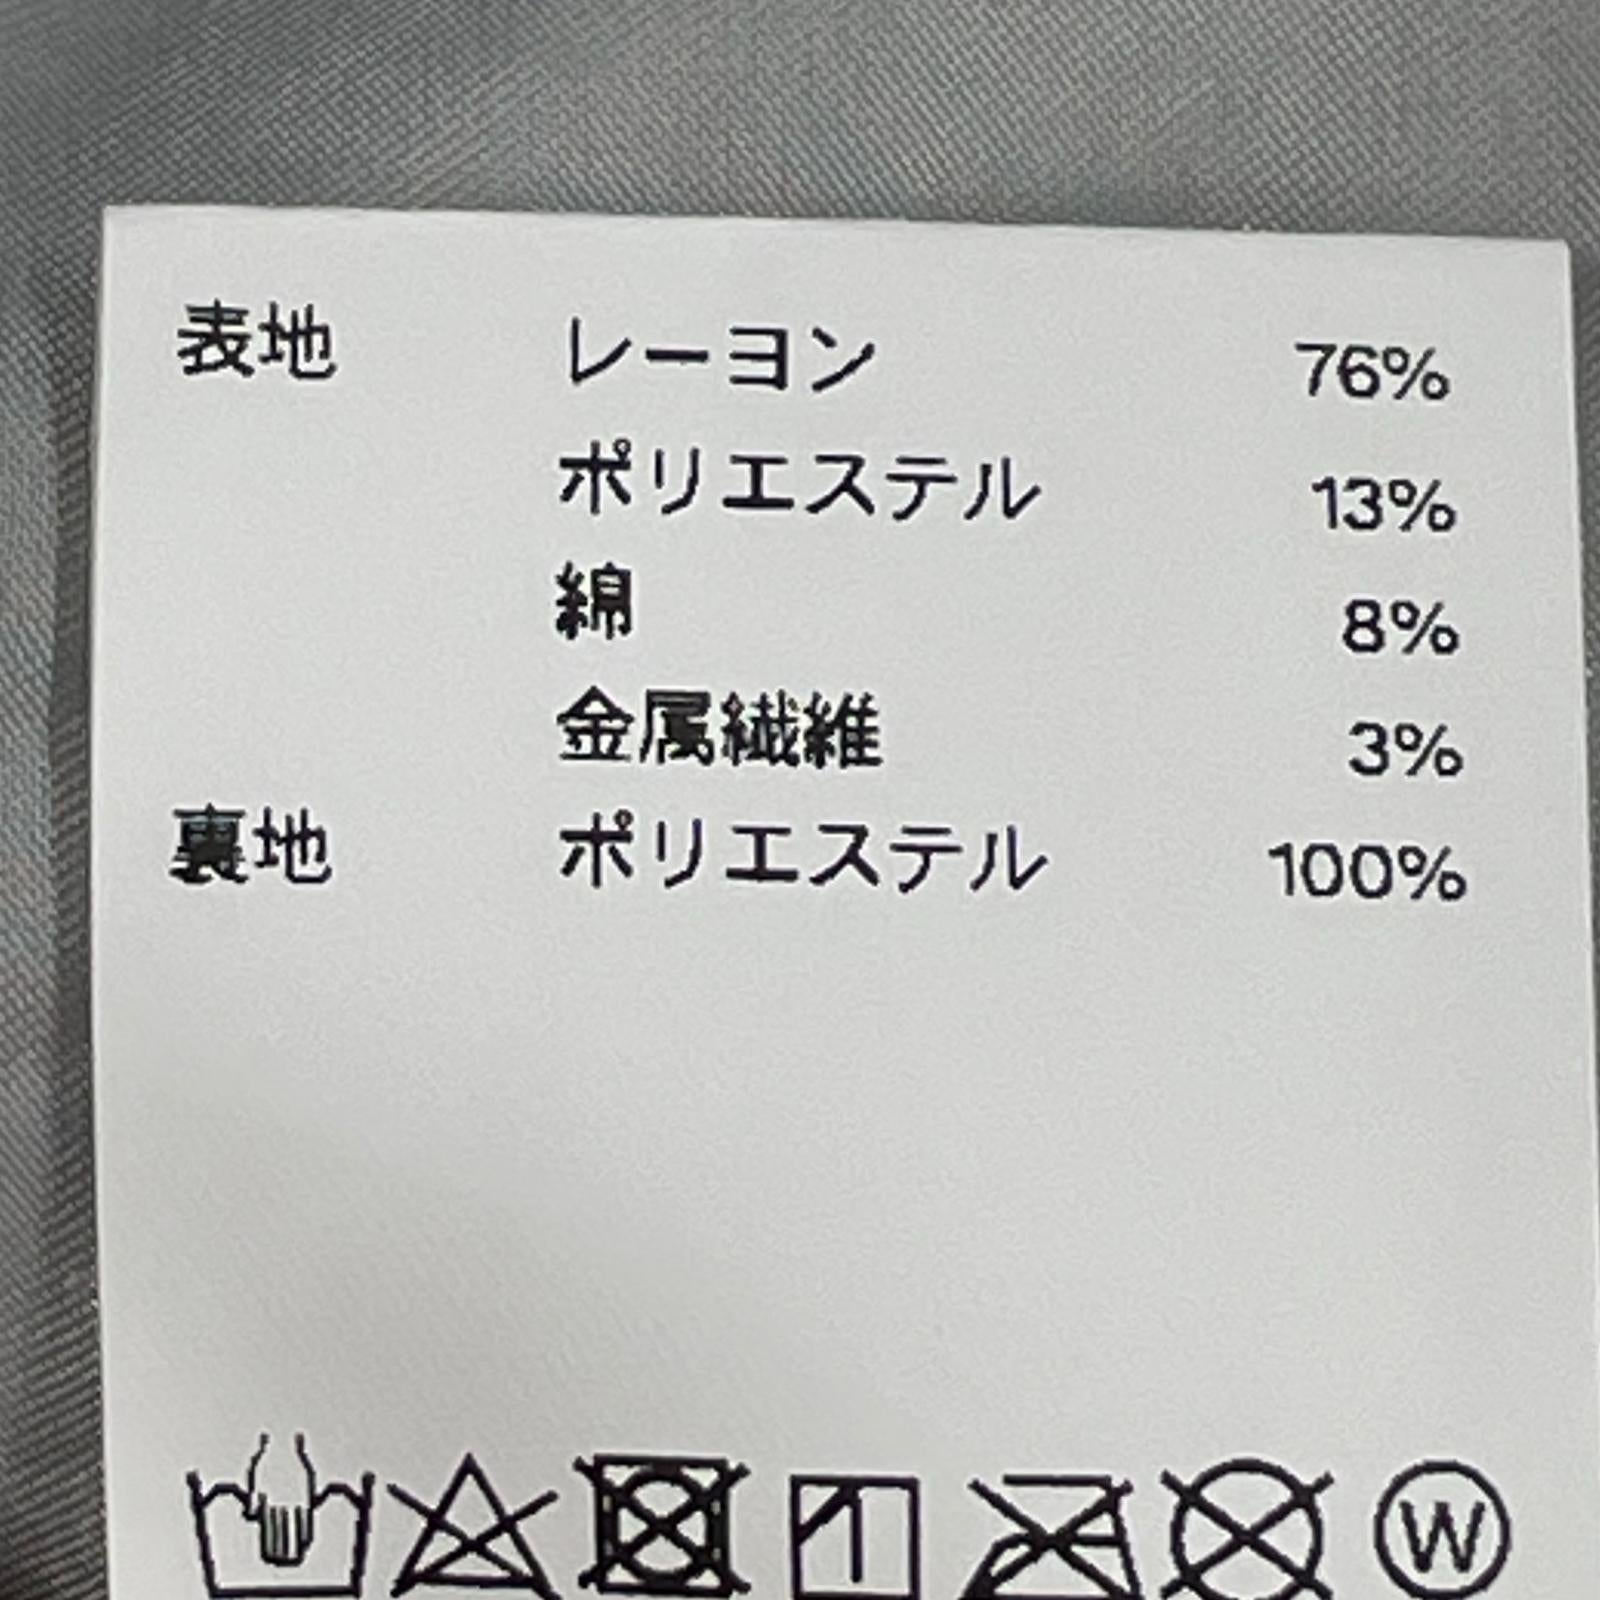 表地 レーヨン 76%
ポリエステル 13%
綿 8%
金属繊維 3%
裏地 ポリエステル 100%
W